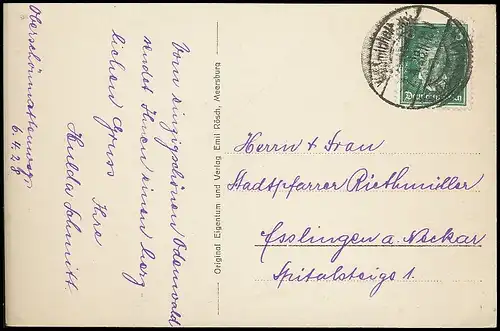 Oberschönmattenwag
6.4.28
Vom einzigschönen Odenwald
sendet Ihnen einen herz-
lichen Gruss
Ihre
Hulda Schmitt
Original Eigentum und Verlag Emil Rösch, Meersburg
Herrn + Frau
Stadtpfarrer Riethmüller
Esslingen a. Neckar
Spitalsteige 1.